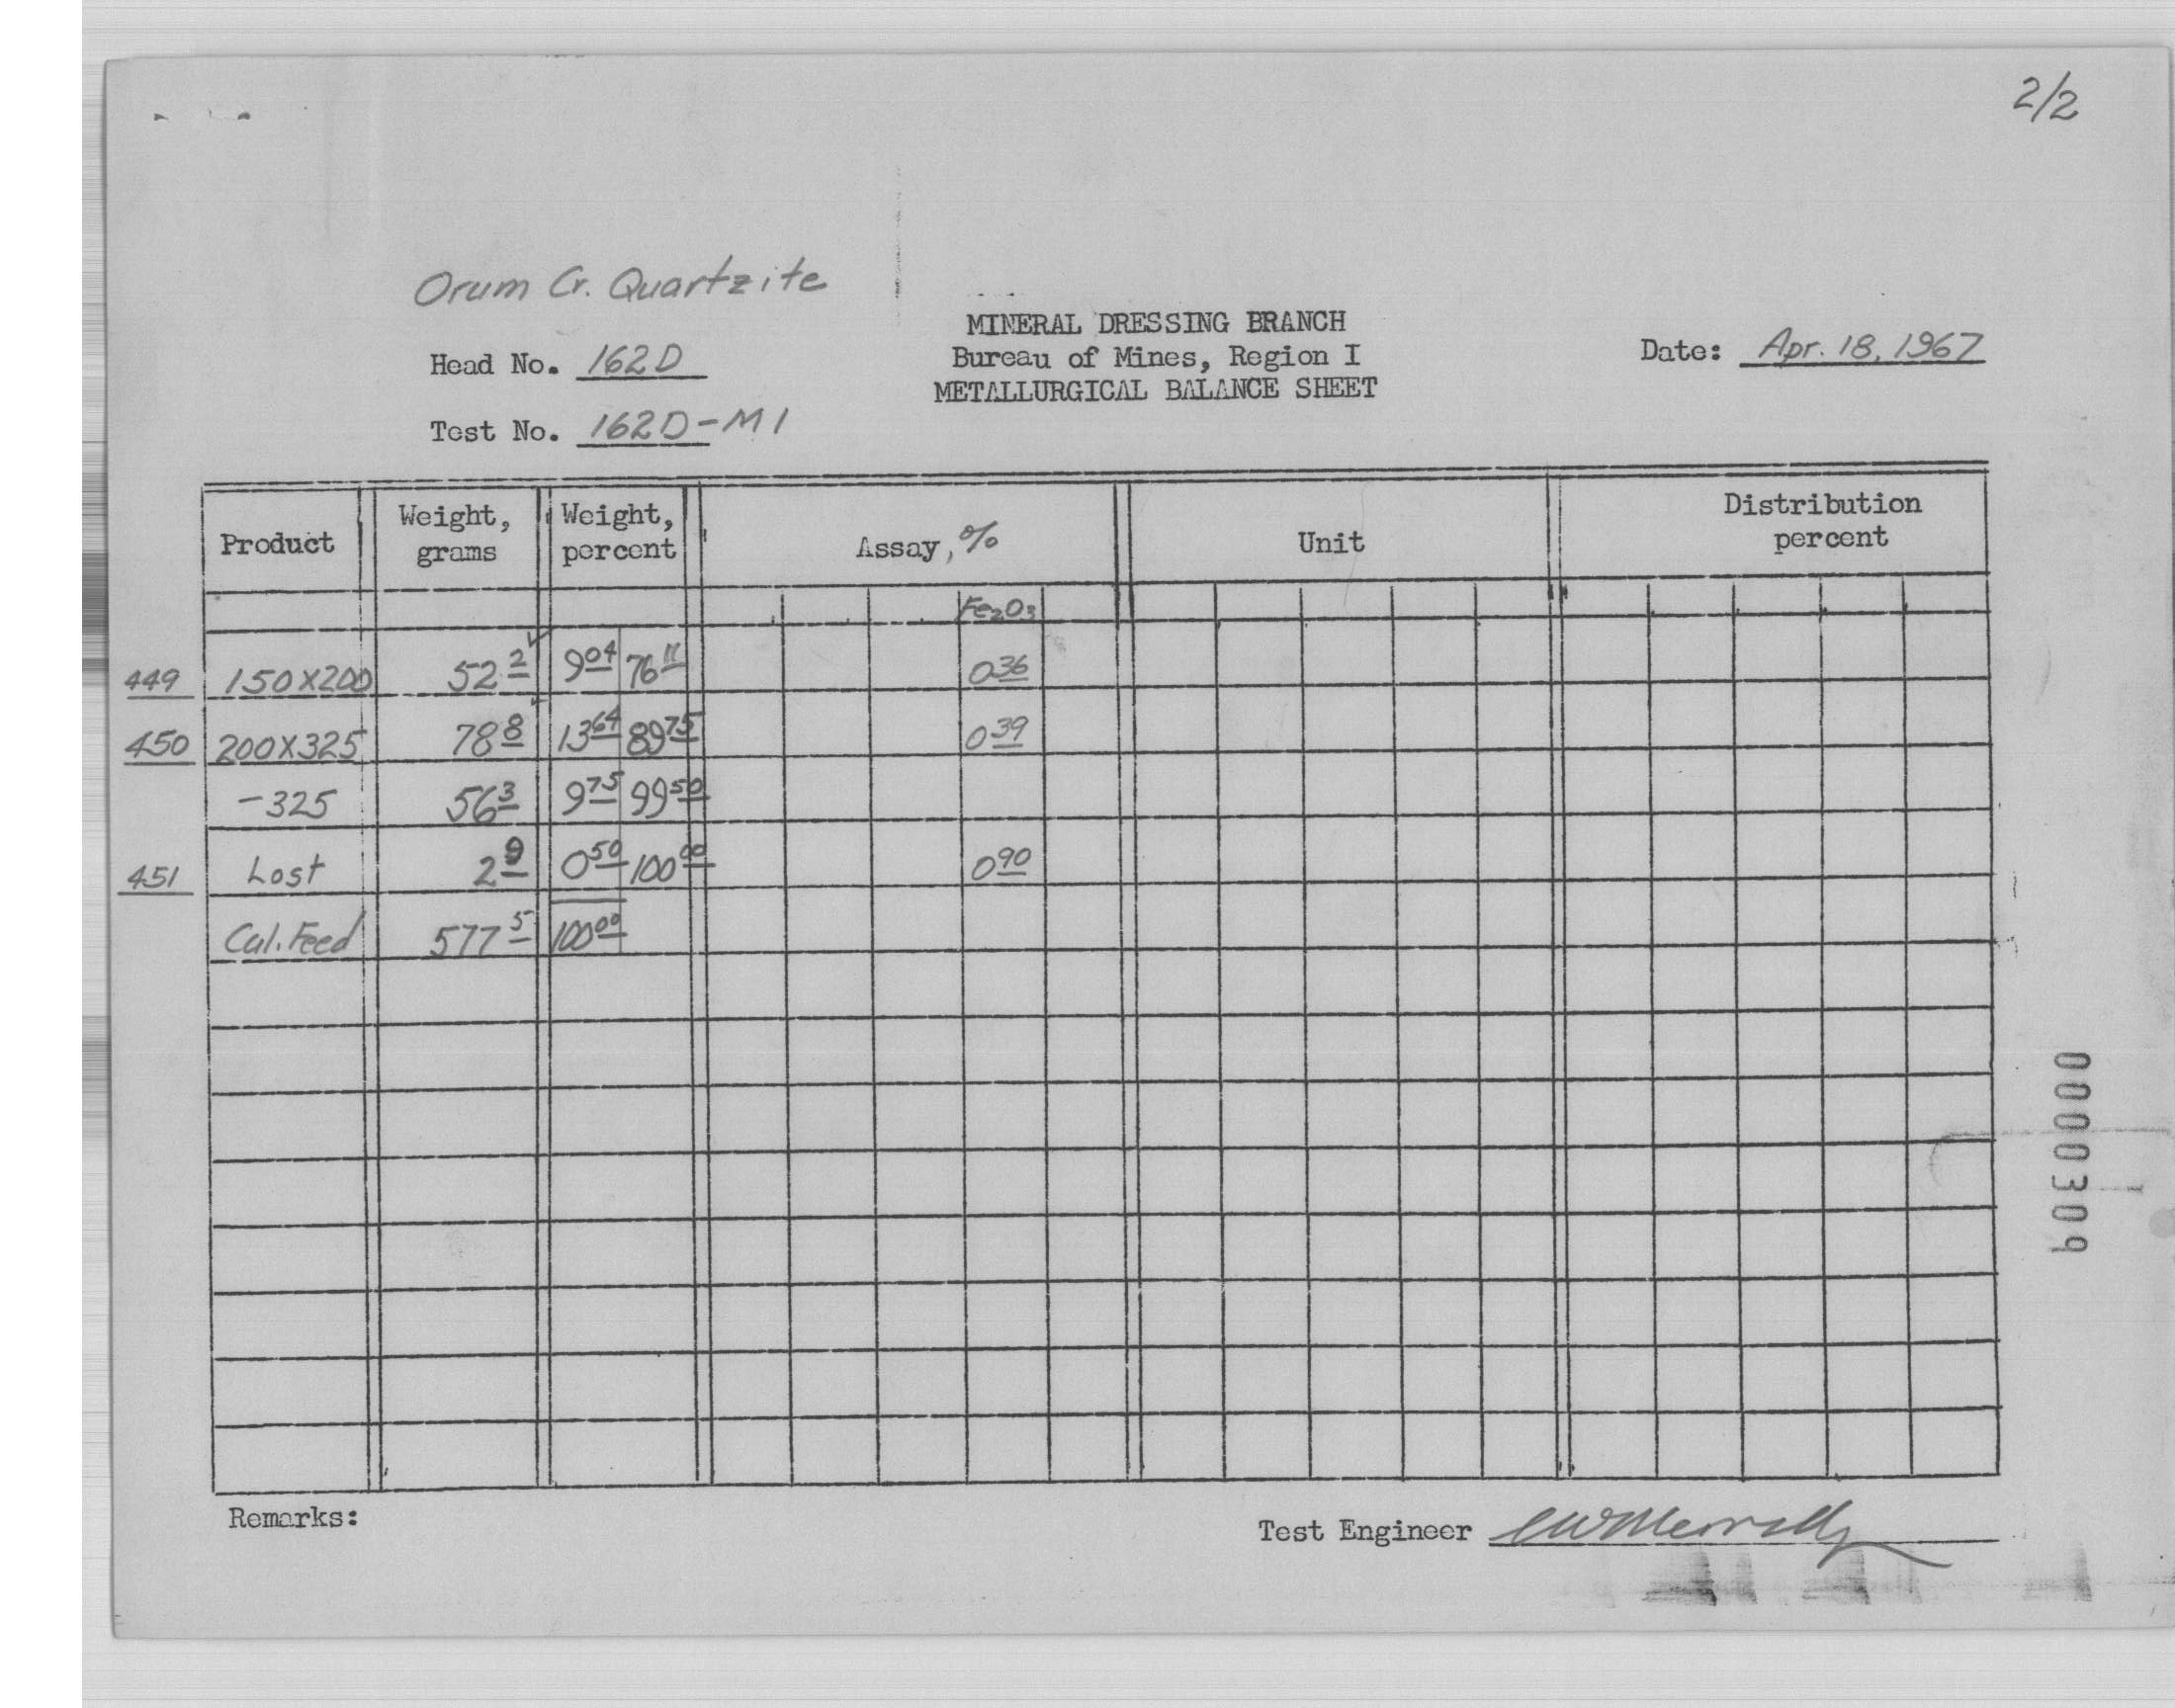 2/2
Orum Cr. Quartzite
MINERAL DRESSING BRANCH
Head No. 162D Bureau of Mines, Region I Date: Apr. 18, 1967
METALLURGICAL BALANCE SHEET
Test No. 162D-M1
Product Weight, grams Weight, percent Assay, % Unit Distribution percent
Fe2O3
449 150X200 52 2 9 04 76 11 0 36
450 200X325 78 8 13 64 89 75 0 39
-325 56 3 9 75 99 50
451 Lost 2 9 0 50 100 00 0 90
Cal. Feed 577 5 100 00
0000309
Remarks:
Test Engineer